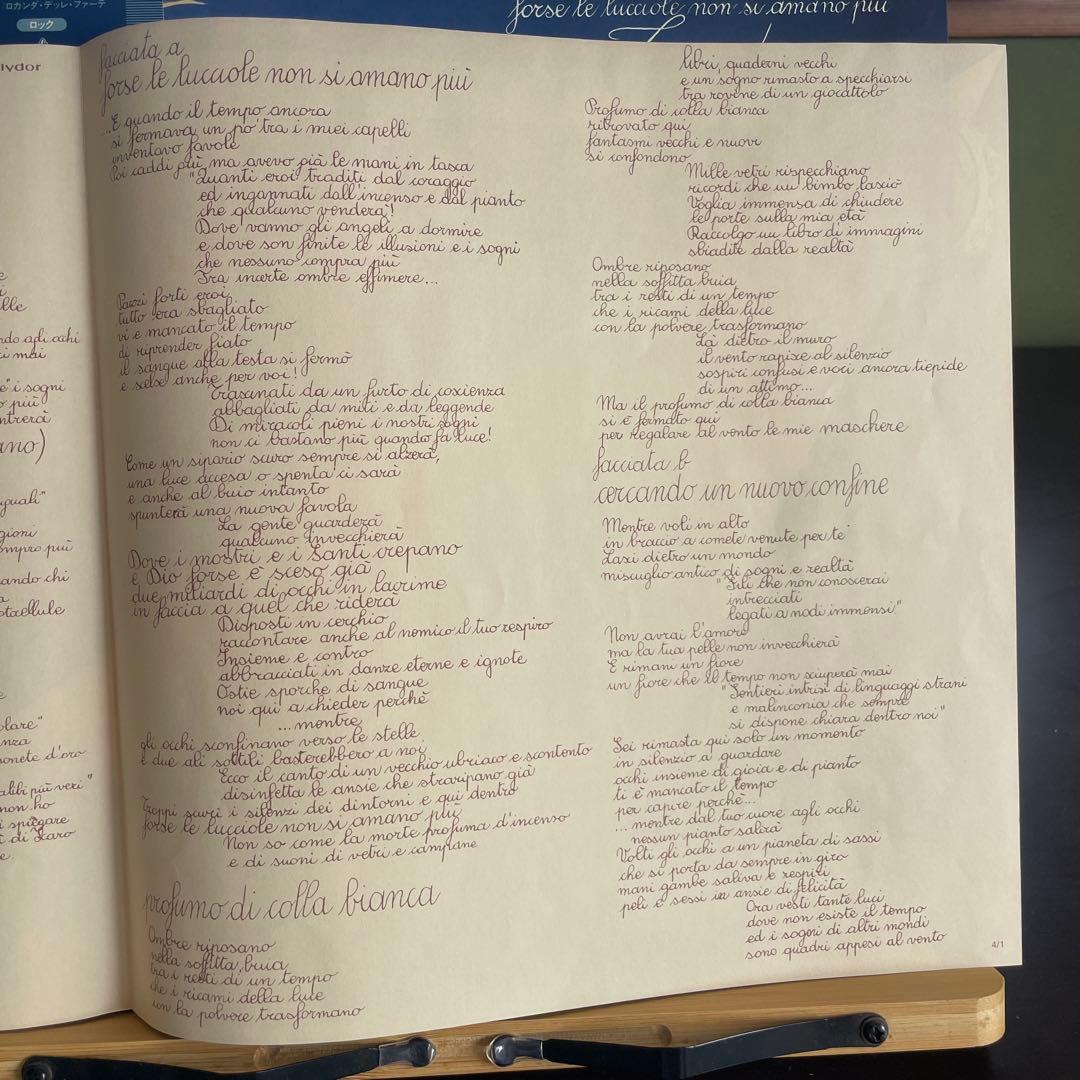 ロカンダ・デッレ・ファーテ
ロック
forse le lucciole non si amano più
lydor
lle
ndo agli occhi
ci mai
e" i sogni
o più
ntrerà
ano)
guali"
gioni
empro più
ando chi
a
otocellule
e
lare"
nza
onete d'oro
alibi più veri"
non ho
i spiegare
à di Icaro
e.
facciata a
forse le lucciole non si amano più
...E quando il tempo ancora
si fermava un po' tra i miei capelli
inventavo favole
Poi caddi giù, ma avevo già le mani in tasca
"Quanti eroi traditi dal coraggio
ed ingannati dall'incenso e dal pianto
che qualcuno venderà!
Dove vanno gli angeli a dormire
e dove son finite le illusioni e i sogni
che nessuno compra più
Tra incerte ombre effimere...
Pazzi forti eroi
tutto era sbagliato
vi è mancato il tempo
di riprender fiato
il sangue alla testa si fermò
e scelse anche per voi!
Trascinati da un furto di coscienza
abbagliati da miti e da leggende
Di miracoli pieni i nostri sogni
non ci bastano più quando fa luce!
Come un sipario scuro sempre si alzerà,
una luce accesa o spenta ci sarà
e anche al buio intanto
spunterà una nuova favola
La gente guarderà
qualcuno invecchierà
Dove i mostri e i Santi crepano
e Dio forse è sceso già
due miliardi di occhi in lacrime
in faccia a quel che riderà
Disposti in cerchio
raccontare anche al nemico il tuo respiro
Insieme e contro
abbracciati in danze eterne e ignote
Ostie sporche di sangue
noi qui a chieder perchè
...mentre
gli occhi sconfinano verso le stelle
e due ali sottili basterebbero a noi
Ecco il canto di un vecchio ubriaco e scontento
disinfetta le ansie che straripano già
Troppi scuri i silenzi dei dintorni e qui dentro
forse le lucciole non si amano più
Non so come la morte profuma d'incenso
e di suoni di vetri e campane
profumo di colla bianca
Ombre riposano
nella soffitta buia
tra i resti di un tempo
che i ricami della luce
con la polvere trasformano
libri, quaderni vecchi
e un sogno rimasto a specchiarsi
tra rovine di un giocattolo
Profumo di colla bianca
ritrovato qui
fantasmi vecchi e nuovi
si confondono
Mille vetri rispecchiano
ricordi che un bimbo lasciò
Voglia immensa di chiudere
le porte sulla mia età
Raccolgo un libro di immagini
sbiadite dalla realtà
Ombre riposano
nella soffitta buia
tra i resti di un tempo
che i ricami della luce
con la polvere trasformano
Là dietro il muro
il vento rapisce al silenzio
sospiri confusi e voci ancora tiepide
di un attimo...
Ma il profumo di colla bianca
si è fermato qui
per regalare al vento le mie maschere
facciata b
cercando un nuovo confine
Mentre voli in alto
in braccio a comete venute per te
Lasci dietro un mondo
miscuglio antico di sogni e realtà
"Fili che non conoscerai
intrecciati
legati a nodi immensi"
Non avrai l'amore
ma la tua pelle non invecchierà
E rimani un fiore
un fiore che il tempo non sciuperà mai
"Sentieri intrisi di linguaggi strani
e malinconia che sempre
si dispone chiara dentro noi"
Sei rimasta qui solo un momento
in silenzio a guardare
occhi insieme di gioia e di pianto
ti è mancato il tempo
per capire perchè...
...mentre dal tuo cuore agli occhi
nessun pianto salirà
Volti gli occhi a un pianeta di sassi
che si porta da sempre in giro
mani gambe saliva e respiri
peli e sessi in ansie di felicità
Ora vesti tante luci
dove non esiste il tempo
ed i sogni di altri mondi
sono quadri appesi al vento
4/1